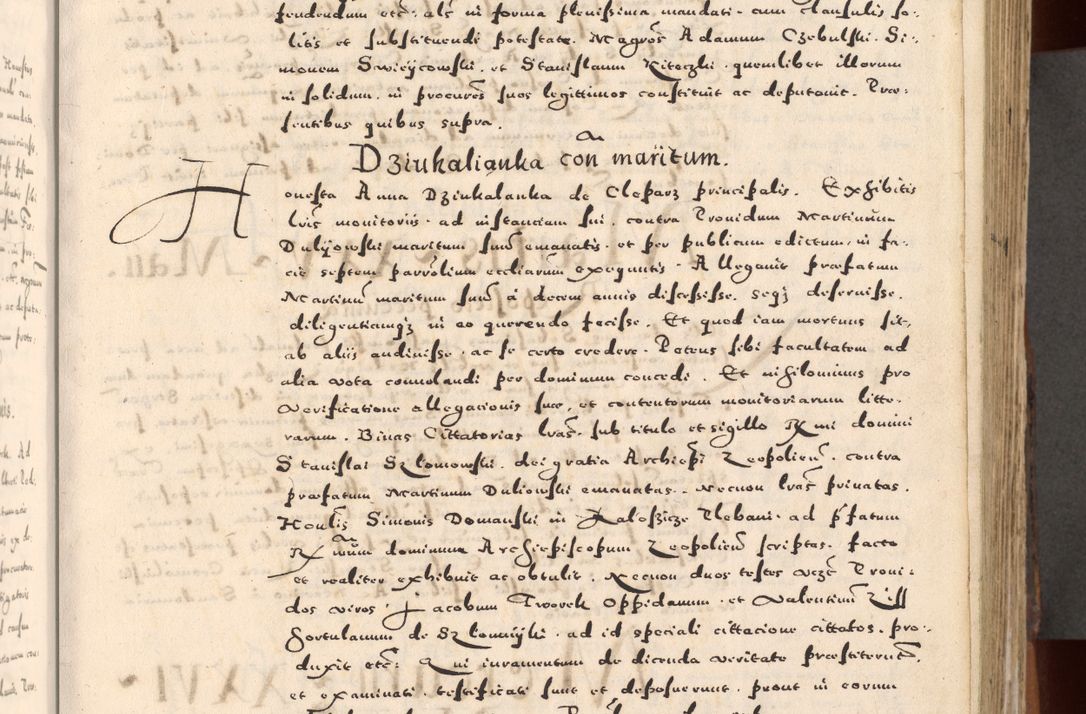 fendendum etc: als in forma plenissima mandati cum clausulis so-
litis et substituendi potestate. Magros Adamum Czebulski. Si-
monem Swieycowski. et Stanislaum Kiteczki quemlibet illorum
in solidum. in procures suos legittimos constituit ac deputauit. Præ-
sentibus quibus supra.
Dziukalianka con maritum.
Honesta Anna Dziukalanka de Cleparz principalis. Exhibitis
lris monitoriis ad instanciam sui. contra Prouidum Martinum
Duliowski maritum suum emanatis. et per publicum edictum in fa-
cie septem parrolium eccliarum exequutis. Alleganit præfatum
Martinum maritum suum à decem annis discessisse. seqz deseruisse.
diligentiamqz in eo querendo fecisse. Et quod iam mortuus sit,
ab aliis audiuisse. ac se certo credere. Petens sibi facultatem ad
alia vota conuolandi per dominum concedi. Et nihilominus pro
verificatione allegacionis suæ, et contentorum monitoriarum litte-
rarum. Binas Cittatorias lras. sub titulo et sigillo Rx mi domini
Stanislai Szlomowski. dei gratia Archiepi Leopolien. contra
præfatum Martinum Duliowski emanatas. Necnon lras priuatas.
Honlis Simonis Domanski in Kaloszicze Plebani. ad pfatum
Rx mum dominum Archiepiscopum Leopolien scriptas. facto
et realiter exhibuit ac obtulit. Necnon duos testes vcz Proui-
dos viros Jacobum Tworek Oppidanum. et Valentinum Ziss
hortulanum de Szlomnyki. ad id speciali cittacione cittatos. pro-
duxit etc: Qui iuramentum de dicenda veritate præstiterunt.
et examinati. testificati sunt et deposuerunt. prout in eorum